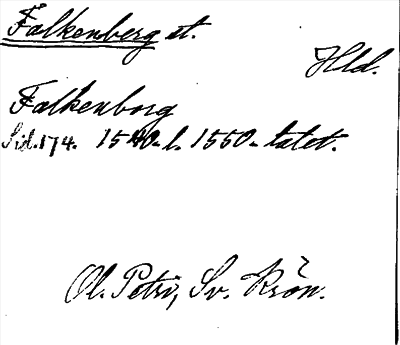 Falkenberg st.
Hld.
Falkenborg
Sid. 174. 1540- l. 1550- talet.
Ol. Petri, Sv. Krön.